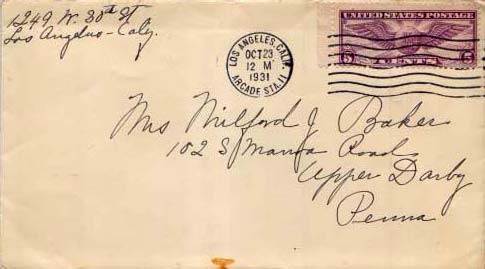 1249 W. 30th St
Los Angeles - Calif.
LOS ANGELES, CALIF.
OCT 23
12 M
1931
ARCADE STA. 11
UNITED STATES POSTAGE
5 CENTS 5
Mrs Milford J Baker
102 S Manoa Road
Upper Darby
Penna